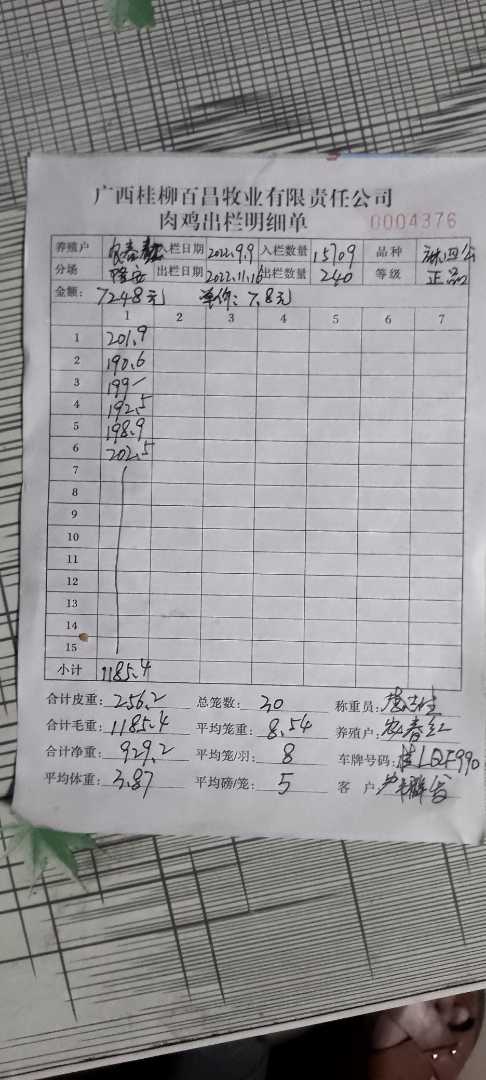 广西桂柳百昌牧业有限责任公司
肉鸡出栏明细单 0004376
养殖户 农春红 入栏日期 2022.9.9 入栏数量 15709 品种
分场 隆安 出栏日期 2022.11.16 出栏数量 240 等级 正品
金额: 7248元 单价: 7.8元
1 2 3 4 5 6 7
1 201.9
2 190.6
3 199-
4 192.5
5 198.9
6 202.5
7
8
9
10
11
12
13
14
15
小计 1185.4
合计皮重: 256.2 总笼数: 30 称重员:
合计毛重: 1185.4 平均笼重: 8.54 养殖户: 农春红
合计净重: 929.2 平均笼/羽: 8 车牌号码: 桂LQF990
平均体重: 3.87 平均磅/笼: 5 客户: